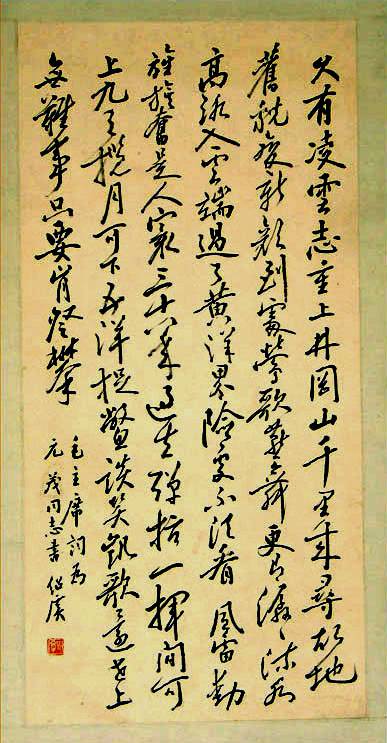 久有凌雲志重上井岡山千里来尋故地
舊貌變新顏到處鶯歌燕舞更有潺々流水
高路入雲端過了黄洋界險處不須看風雷動
旌旗奮是人寰三十八年過去彈指一揮間可
上九天攬月可下五洋捉鱉談笑凱歌還世上
無難事只要肯登攀
毛主席詞為
元茂同志書